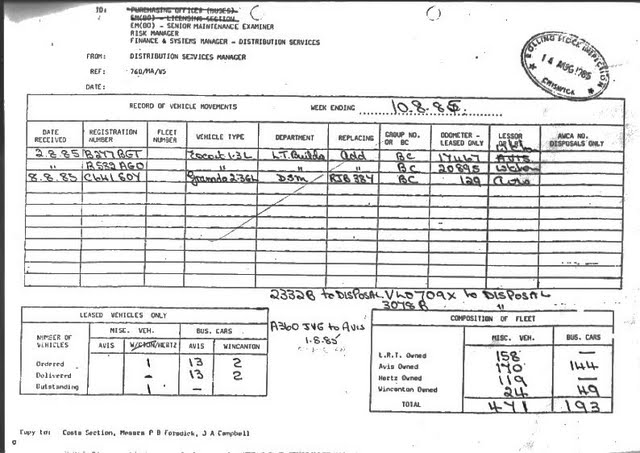 TO: PURCHASING OFFICER (BUSES)
EM(BO) - LICENSING SECTION
EM(BO) - SENIOR MAINTENANCE EXAMINER
RISK MANAGER
FINANCE & SYSTEMS MANAGER - DISTRIBUTION SERVICES
FROM: DISTRIBUTION SERVICES MANAGER
REF: 760/MA/V5
DATE:
ROLLING STOCK INSPECTION
14 AUG 1985
CHISWICK
RECORD OF VEHICLE MOVEMENTS WEEK ENDING 10.8.85.
DATE RECEIVED REGISTRATION NUMBER FLEET NUMBER VEHICLE TYPE DEPARTMENT REPLACING GROUP NO. OR BC ODOMETER - LEASED ONLY LESSOR AWCA NO. DISPOSALS ONLY
2.8.85 B277 BGT Escort 1.3L L.T. Builds Add BC 17467 AVIS
" B582 AGO " " " BC 20895
8.8.85 C641 GOY Granada 2.3GL DSM RJB 384 BC 129 Avis
2332B to DISPOSAL. VLD 709X to DISPOSAL
3078R "
A360 JVG to AVIS
1.8.85
LEASED VEHICLES ONLY
NUMBER OF VEHICLES MISC. VEH. BUS. CARS
AVIS W/CTON/HERTZ AVIS WINCANTON
Ordered 1 13 2
Delivered 1 13 2
Outstanding 1 - 
COMPOSITION OF FLEET
MISC. VEH. BUS. CARS
L.R.T. Owned 158 —
Avis Owned 170 144
Hertz Owned 119 —
Wincanton Owned 24 49
TOTAL 471 193
Copy to: Costs Section, Messrs P B Forswick, J A Campbell